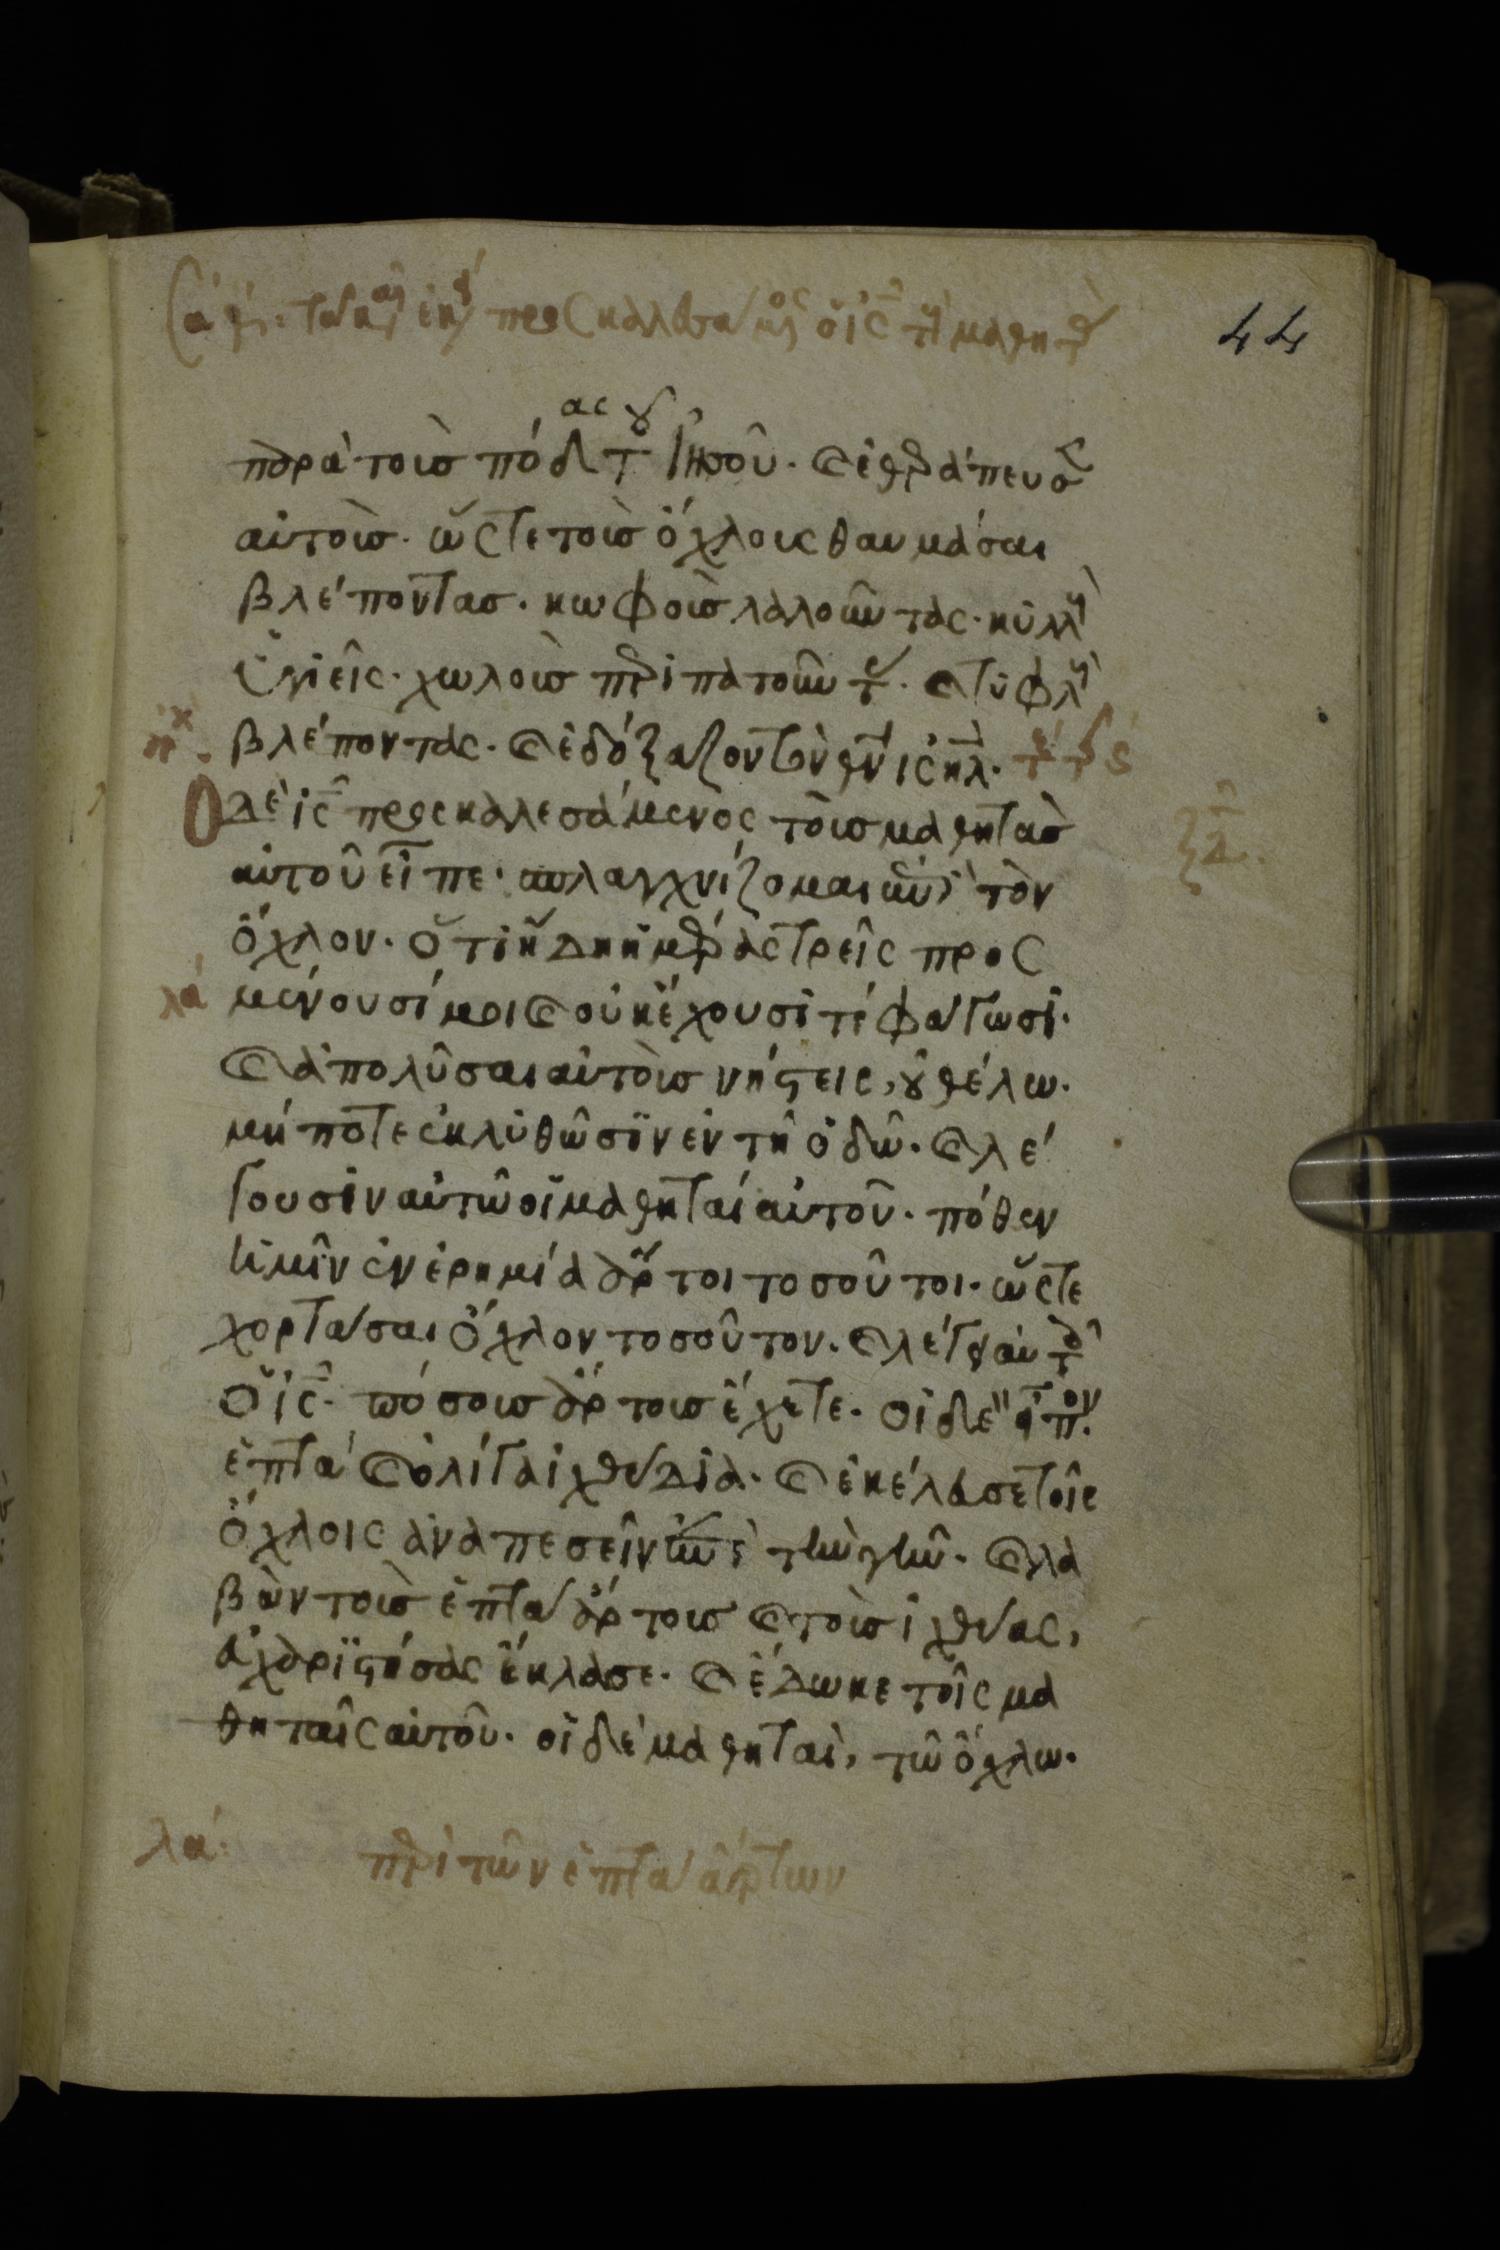 τῶ καιρῶ ἐκείνω προσκαλεσάμενος ὁ ις τοὺς μαθητὰς
44
παρὰ τοὺς πόδας τοῦ Ἰησοῦ· καὶ ἐθεράπευσεν
αὐτούς· ὥστε τοὺς ὄχλους θαυμάσαι
βλέποντας· κωφοὺς λαλοῦντας· κυλλοὺς
ὑγιεῖς· χωλοὺς περιπατοῦντας· καὶ τυφλοὺς
βλέποντας· καὶ ἐδόξαζον τὸν θν ιηλ· τέλος
Ὁ δὲ ις προσκαλεσάμενος τοὺς μαθητὰς
αὐτοῦ εἶπε· σπλαγχνίζομαι ἐπὶ τὸν
ὄχλον· ὅτι ἤδη ἡμέρας τρεῖς προς
λα μένουσί μοι καὶ οὐκ ἔχουσι τί φάγωσι·
καὶ ἀπολῦσαι αὐτοὺς νήστεις, οὐ θέλω·
μήποτε ἐκλυθῶσιν ἐν τῆ ὁδῶ· καὶ λέ
γουσιν αὐτῶ οἱ μαθηταί αὐτοῦ· πόθεν
ἡμῖν ἐν ἐρημία ἄρτοι τοσοῦτοι· ὥστε
χορτάσαι ὄχλον τοσοῦτον· καὶ λέγει αὐτοῖς
ὁ ις· πόσους ἄρτους ἔχετε· οἱ δὲ εἶπον·
ἑπτά καὶ ὀλίγα ἰχθύδια· καὶ ἐκέλευσε τοῖς
ὄχλοις ἀναπεσεῖν ἐπὶ τὴν γῆν· καὶ λα
βὼν τοὺς ἑπτὰ ἄρτους καὶ τοὺς ἰχθύας,
εὐχαριστήσας ἔκλασε· καὶ ἔδωκε τοῖς μα
θηταῖς αὐτοῦ· οἱ δὲ μαθηταὶ, τῶ ὄχλω·
λα· περὶ τῶν ἑπτὰ ἄρτων